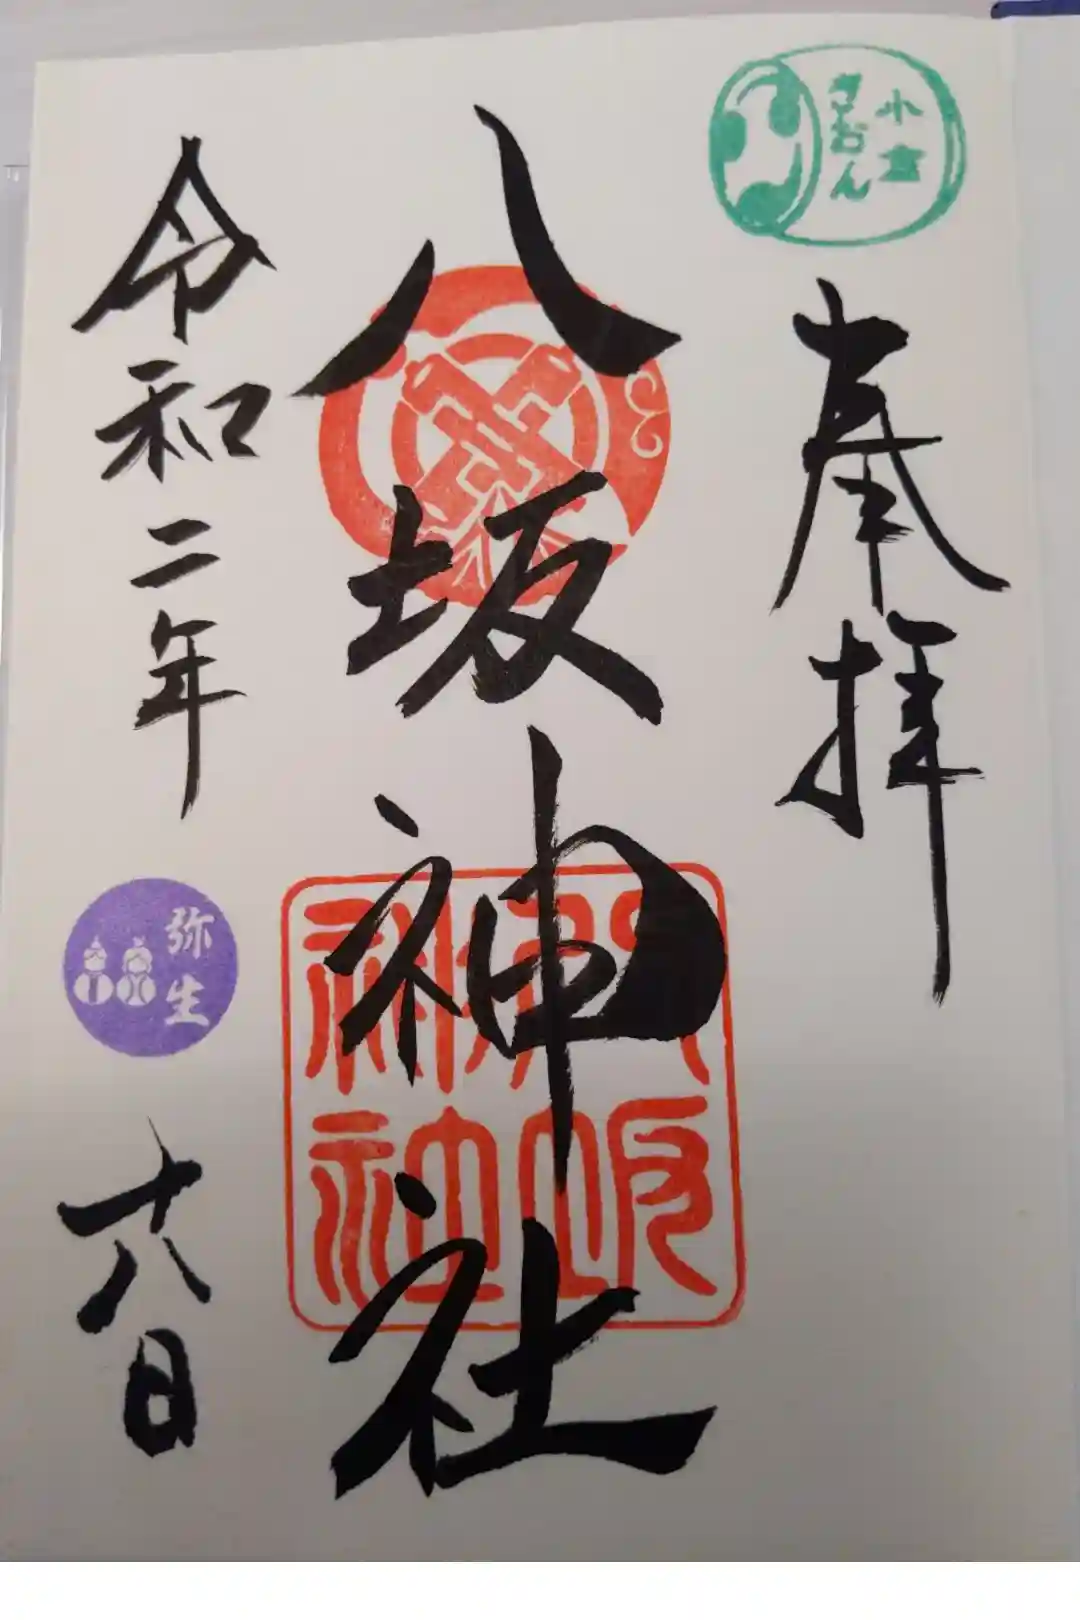 小倉
ぎおん
奉拝
八坂神社
八坂
神社
令和二年
弥生
十八日